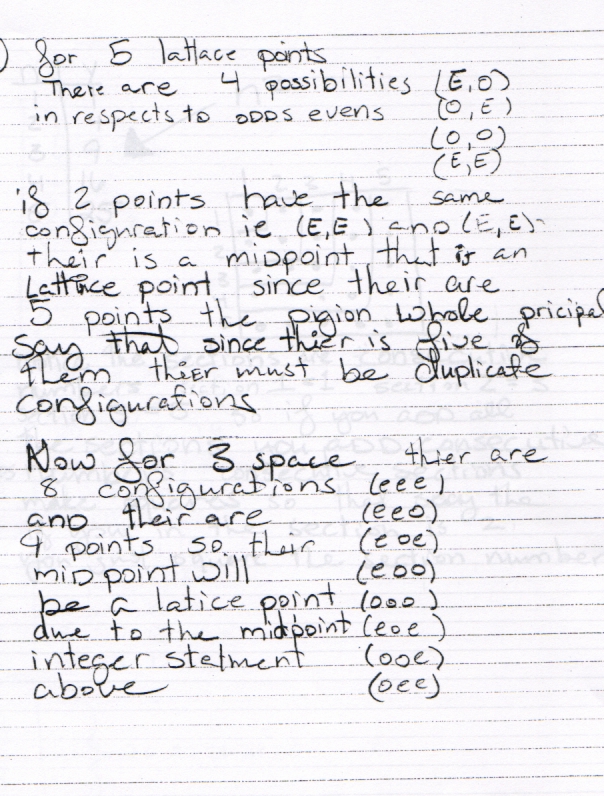 ) for 5 lattace points
There are 4 possibilities (E,O)
in respects to ODDS evens (O,E)
(O,O)
(E,E)
if 2 points have the same
configuration ie (E,E) and (E,E)
their is a midpoint that is an
Lattice point since their are
5 points the pigion whole pricipal
say that since thier is five of
them thier must be duplicate
configurations
Now for 3 space thier are
8 configurations (eee)
and their are (eeo)
9 points so ther (eoe)
midpoint will (eoo)
be a latice point (ooo)
due to the midpoint (eoe)
integer stetment (ooe)
above (oee)